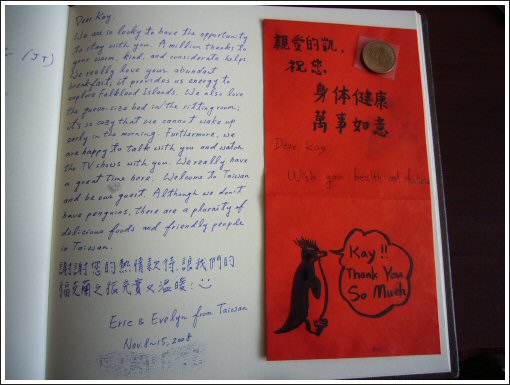 (JT)
Dear Kay,
We are so lucky to have the opportunity
to stay with you. A million thanks to
your warm, kind, and considerate helps.
We really love your abundant
breakfast; it provides us energy to
explore Falkland Islands. We also love
the queen-size bed in the sitting room;
it's so cozy that we cannot wake up
early in the morning. Furthermore, we
are happy to talk with you and watch
the TV shows with you. We really have
a great time here. Welcome to Taiwan
and be our guest. Although we don't
have penguins, there are a plurality of
delicious foods and friendly people
in Taiwan.
謝謝您的熱情款待,讓我們的
福克蘭之旅充實又溫暖:
Eric & Evelyn from Taiwan
Nov. 8~15, 2008
親愛的凱,
祝您
身体健康
萬事如意
Dear Kay,
Wish you health and
Kay!!
Thank You
So Much